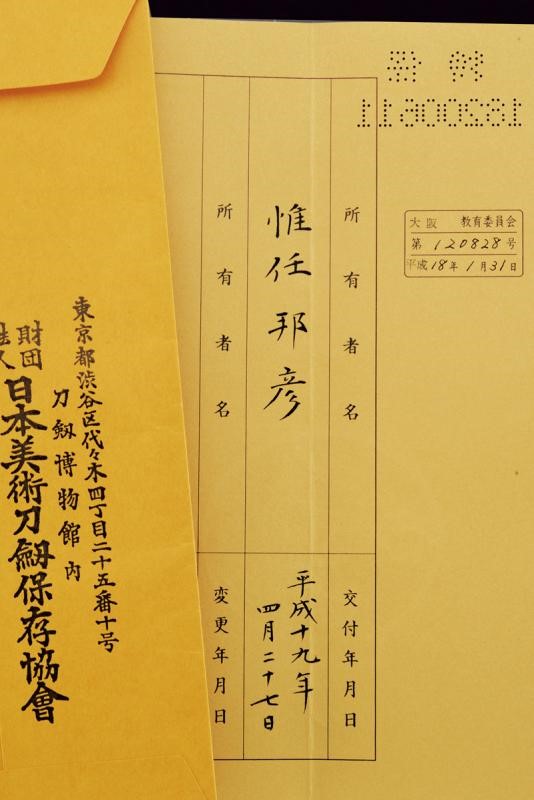 大阪 教育委員会
第 120828 号
平成18年 1月31日
所有者名
交付年月日
惟任邦彦
平成十九年
四月二十七日
所有者名
変更年月日
東京都渋谷区代々木四丁目二十五番十号
刀剱博物館内
財団
日本美術刀剱保存協會